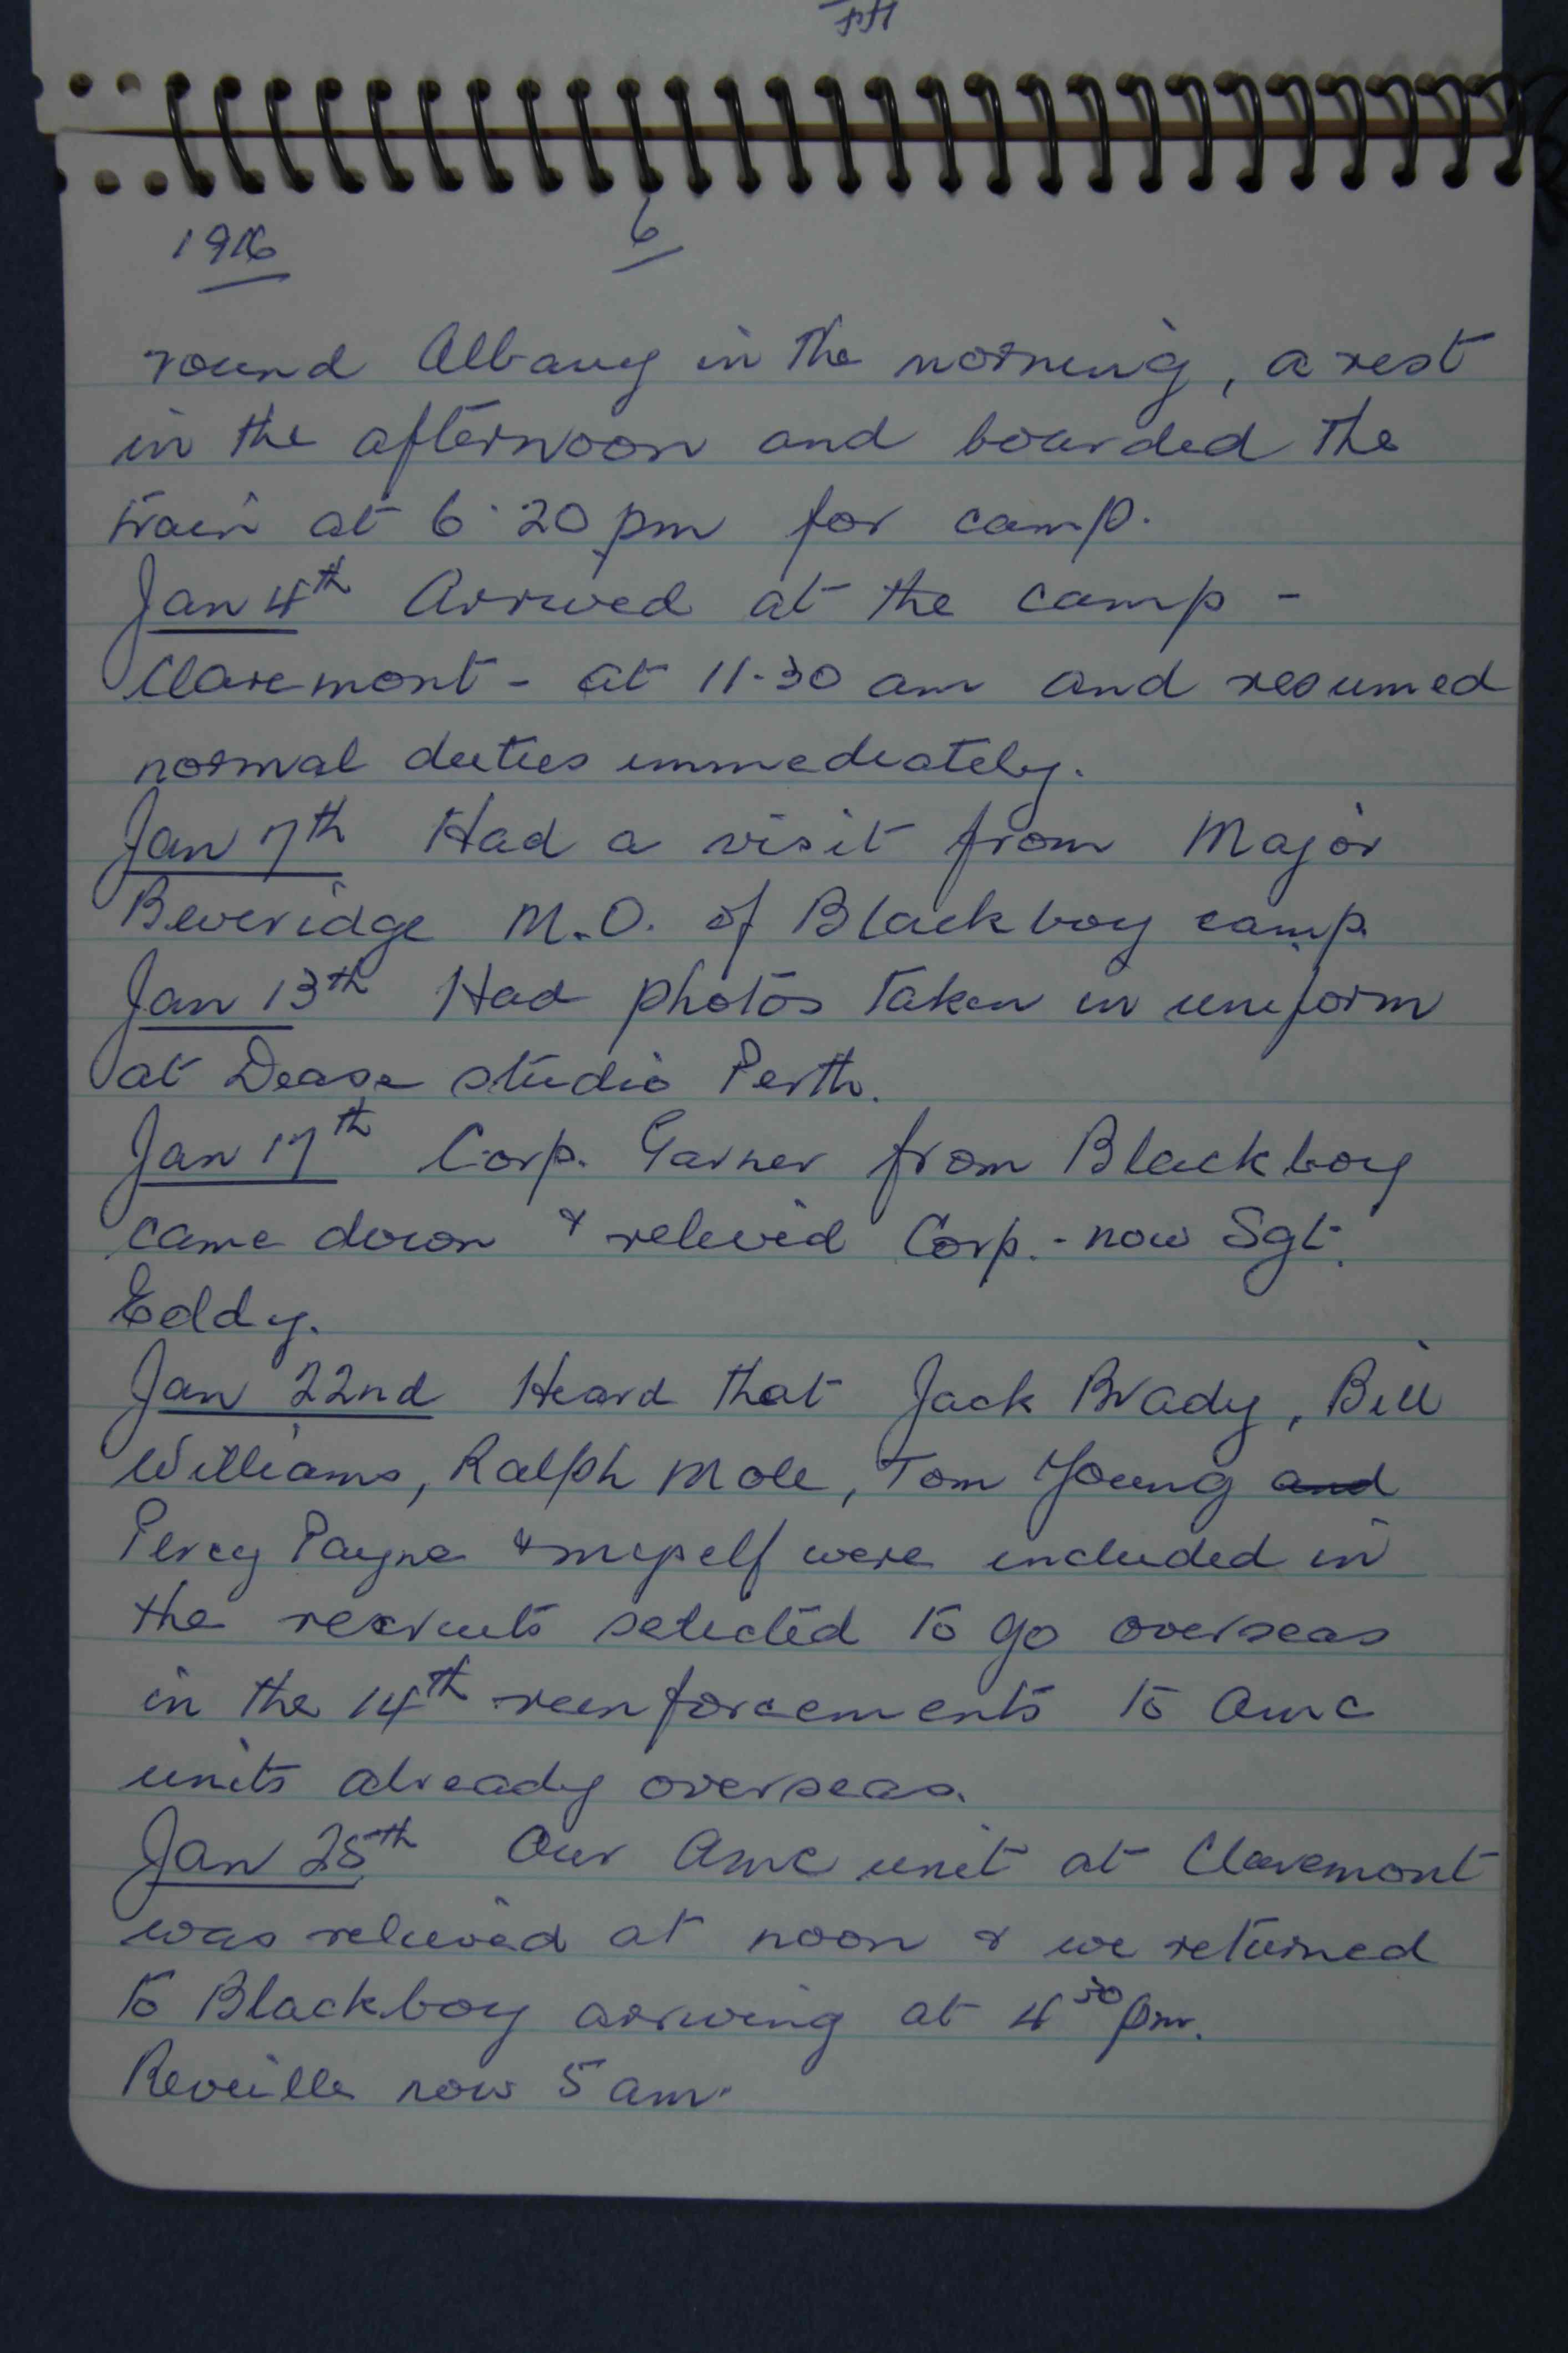 1916 6
round Albany in the morning, a rest
in the afternoon and boarded the
train at 6.20 pm for camp.
Jan 4th Arrived at the camp -
Claremont - at 11.30 am and resumed
normal duties immediately.
Jan 7th Had a visit from Major
Beveridge M.O. of Blackboy camp.
Jan 13th Had photos taken in uniform
at Dease studio Perth.
Jan 17th Corp. Garner from Blackboy
came down & relieved Corp. - now Sgt.
Eddy.
Jan 22nd Heard that Jack Brady, Bill
Williams, Ralph Mole, Tom Young and
Percy Payne & myself were included in
the recruits selected to go overseas
in the 14th reenforcements to AMC
units already overseas.
Jan 25th Our AMC unit at Claremont
was relieved at noon & we returned
to Blackboy arriving at 4 30 pm.
Reveille now 5 am.